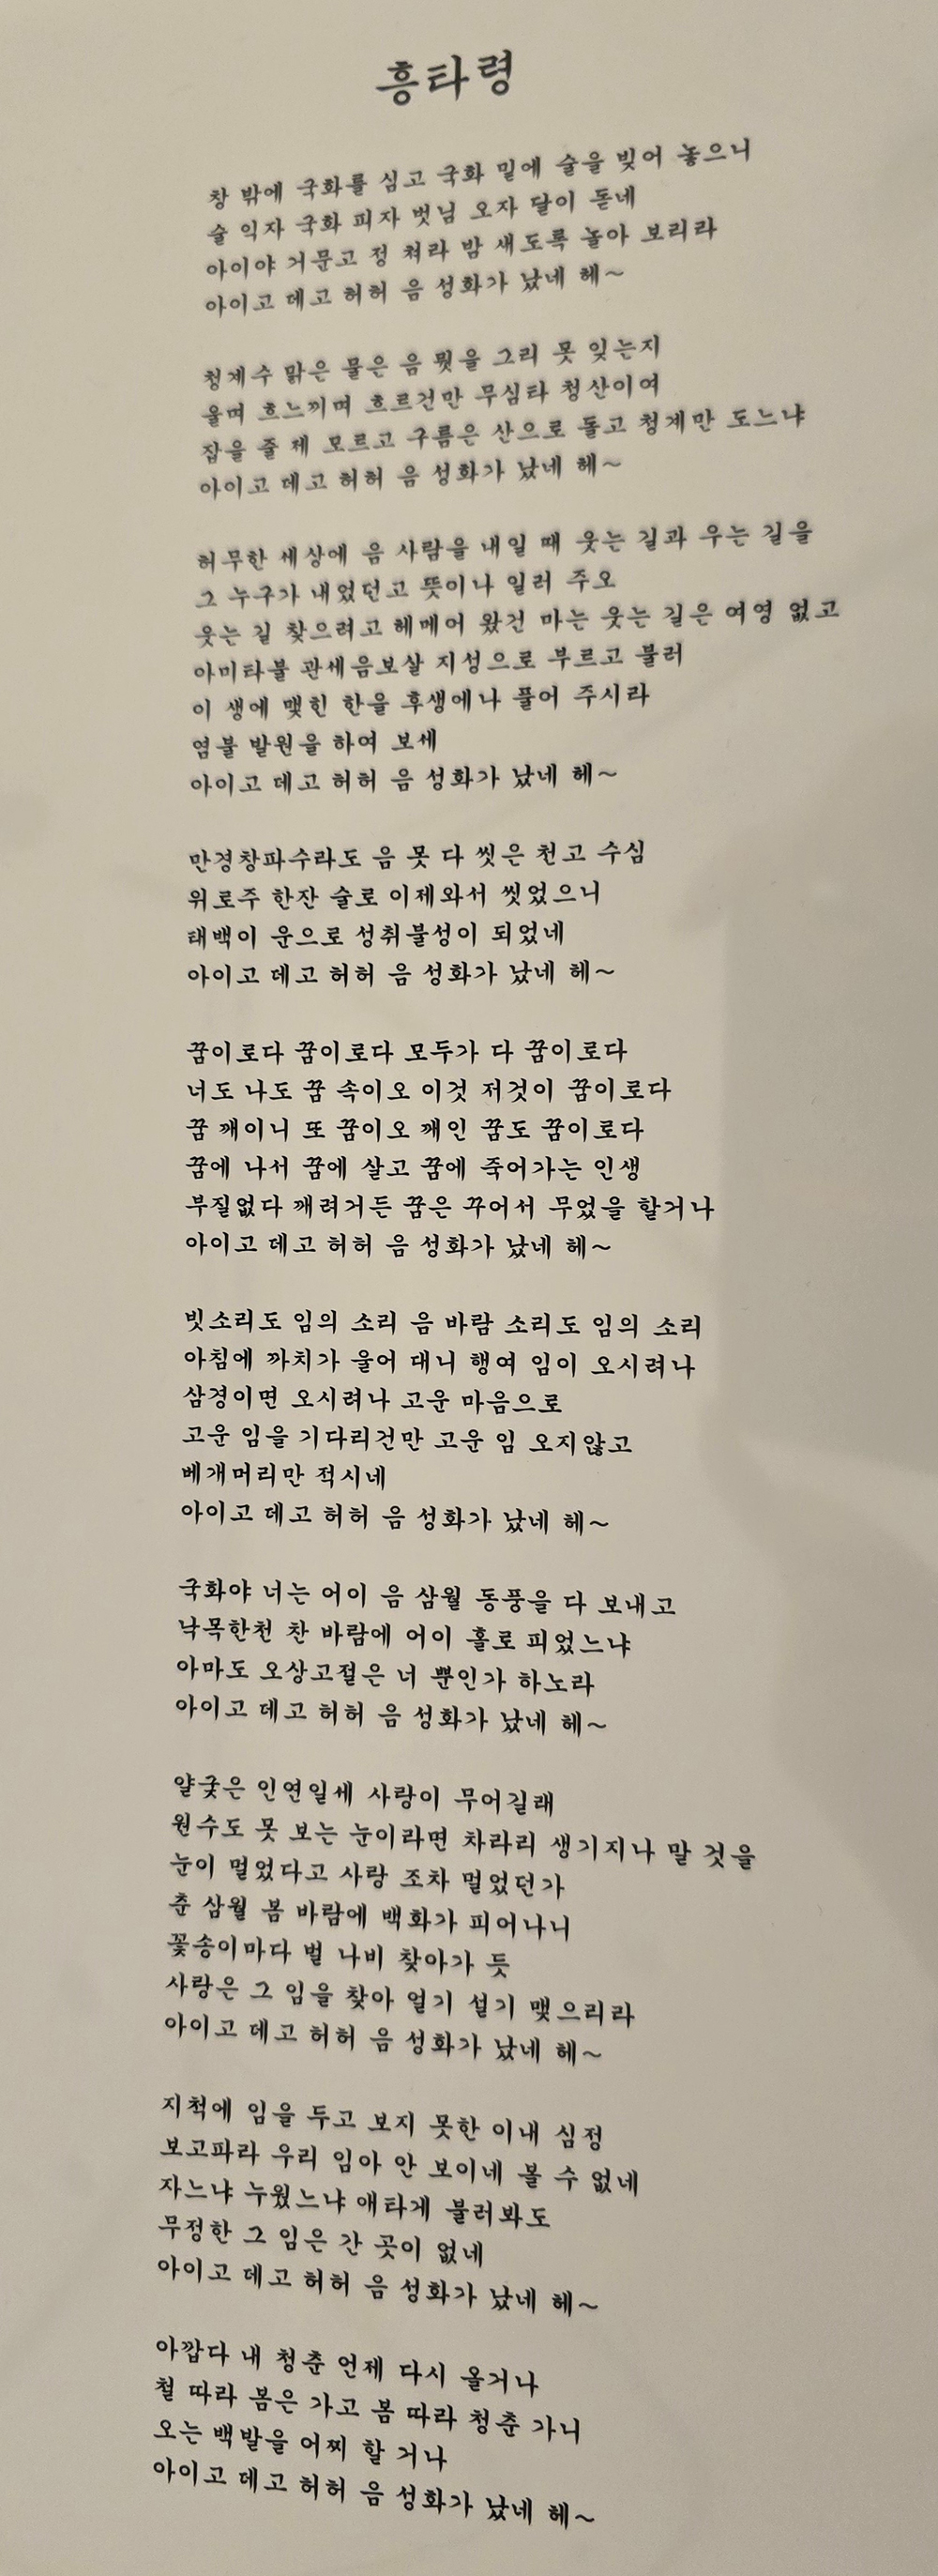 흥타령
창 밖에 국화를 심고 국화 밑에 술을 빚어 놓으니
술 익자 국화 피자 벗님 오자 달이 돋네
아이야 거문고 정 쳐라 밤 새도록 놀아 보리라
아이고 데고 허허 음 성화가 났네 헤~
청계수 맑은 물은 음 뭣을 그리 못 잊는지
울며 흐느끼며 흐르건만 무심타 청산이여
잡을 줄 제 모르고 구름은 산으로 돌고 청계만 도느냐
아이고 데고 허허 음 성화가 났네 헤~
허무한 세상에 음 사람을 내일 때 웃는 길과 우는 길을
그 누구가 내었던고 뜻이나 일러 주오
웃는 길 찾으려고 헤메어 왔건 마는 웃는 길은 여영 없고
아미타불 관세음보살 지성으로 부르고 불러
이 생에 맺힌 한을 후생에나 풀어 주시라
염불 발원을 하여 보세
아이고 데고 허허 음 성화가 났네 헤~
만경창파수라도 음 못 다 씻은 천고 수심
위로주 한잔 술로 이제와서 씻었으니
태백이 운으로 성취불성이 되었네
아이고 데고 허허 음 성화가 났네 헤~
꿈이로다 꿈이로다 모두가 다 꿈이로다
너도 나도 꿈 속이오 이것 저것이 꿈이로다
꿈 깨이니 또 꿈이오 깨인 꿈도 꿈이로다
꿈에 나서 꿈에 살고 꿈에 죽어가는 인생
부질없다 깨려거든 꿈은 꾸어서 무었을 할거나
아이고 데고 허허 음 성화가 났네 헤~
빗소리도 임의 소리 음 바람 소리도 임의 소리
아침에 까치가 울어 대니 행여 임이 오시려나
삼경이면 오시려나 고운 마음으로
고운 임을 기다리건만 고운 임 오지않고
베개머리만 적시네
아이고 데고 허허 음 성화가 났네 헤~
국화야 너는 어이 음 삼월 동풍을 다 보내고
낙목한천 찬 바람에 어이 홀로 피었느냐
아마도 오상고절은 너 뿐인가 하노라
아이고 데고 허허 음 성화가 났네 헤~
얄궂은 인연일세 사랑이 무어길래
원수도 못 보는 눈이라면 차라리 생기지나 말 것을
눈이 멀었다고 사랑 조차 멀었던가
춘 삼월 봄 바람에 백화가 피어나니
꽃송이마다 벌 나비 찾아가 듯
사랑은 그 임을 찾아 얼기 설기 맺으리라
아이고 데고 허허 음 성화가 났네 헤~
지척에 임을 두고 보지 못한 이내 심정
보고파라 우리 임아 안 보이네 볼 수 없네
자느냐 누웠느냐 애타게 불러봐도
무정한 그 임은 간 곳이 없네
아이고 데고 허허 음 성화가 났네 헤~
아깝다 내 청춘 언제 다시 올거나
철 따라 봄은 가고 봄 따라 청춘 가니
오는 백발을 어찌 할 거나
아이고 데고 허허 음 성화가 났네 헤~